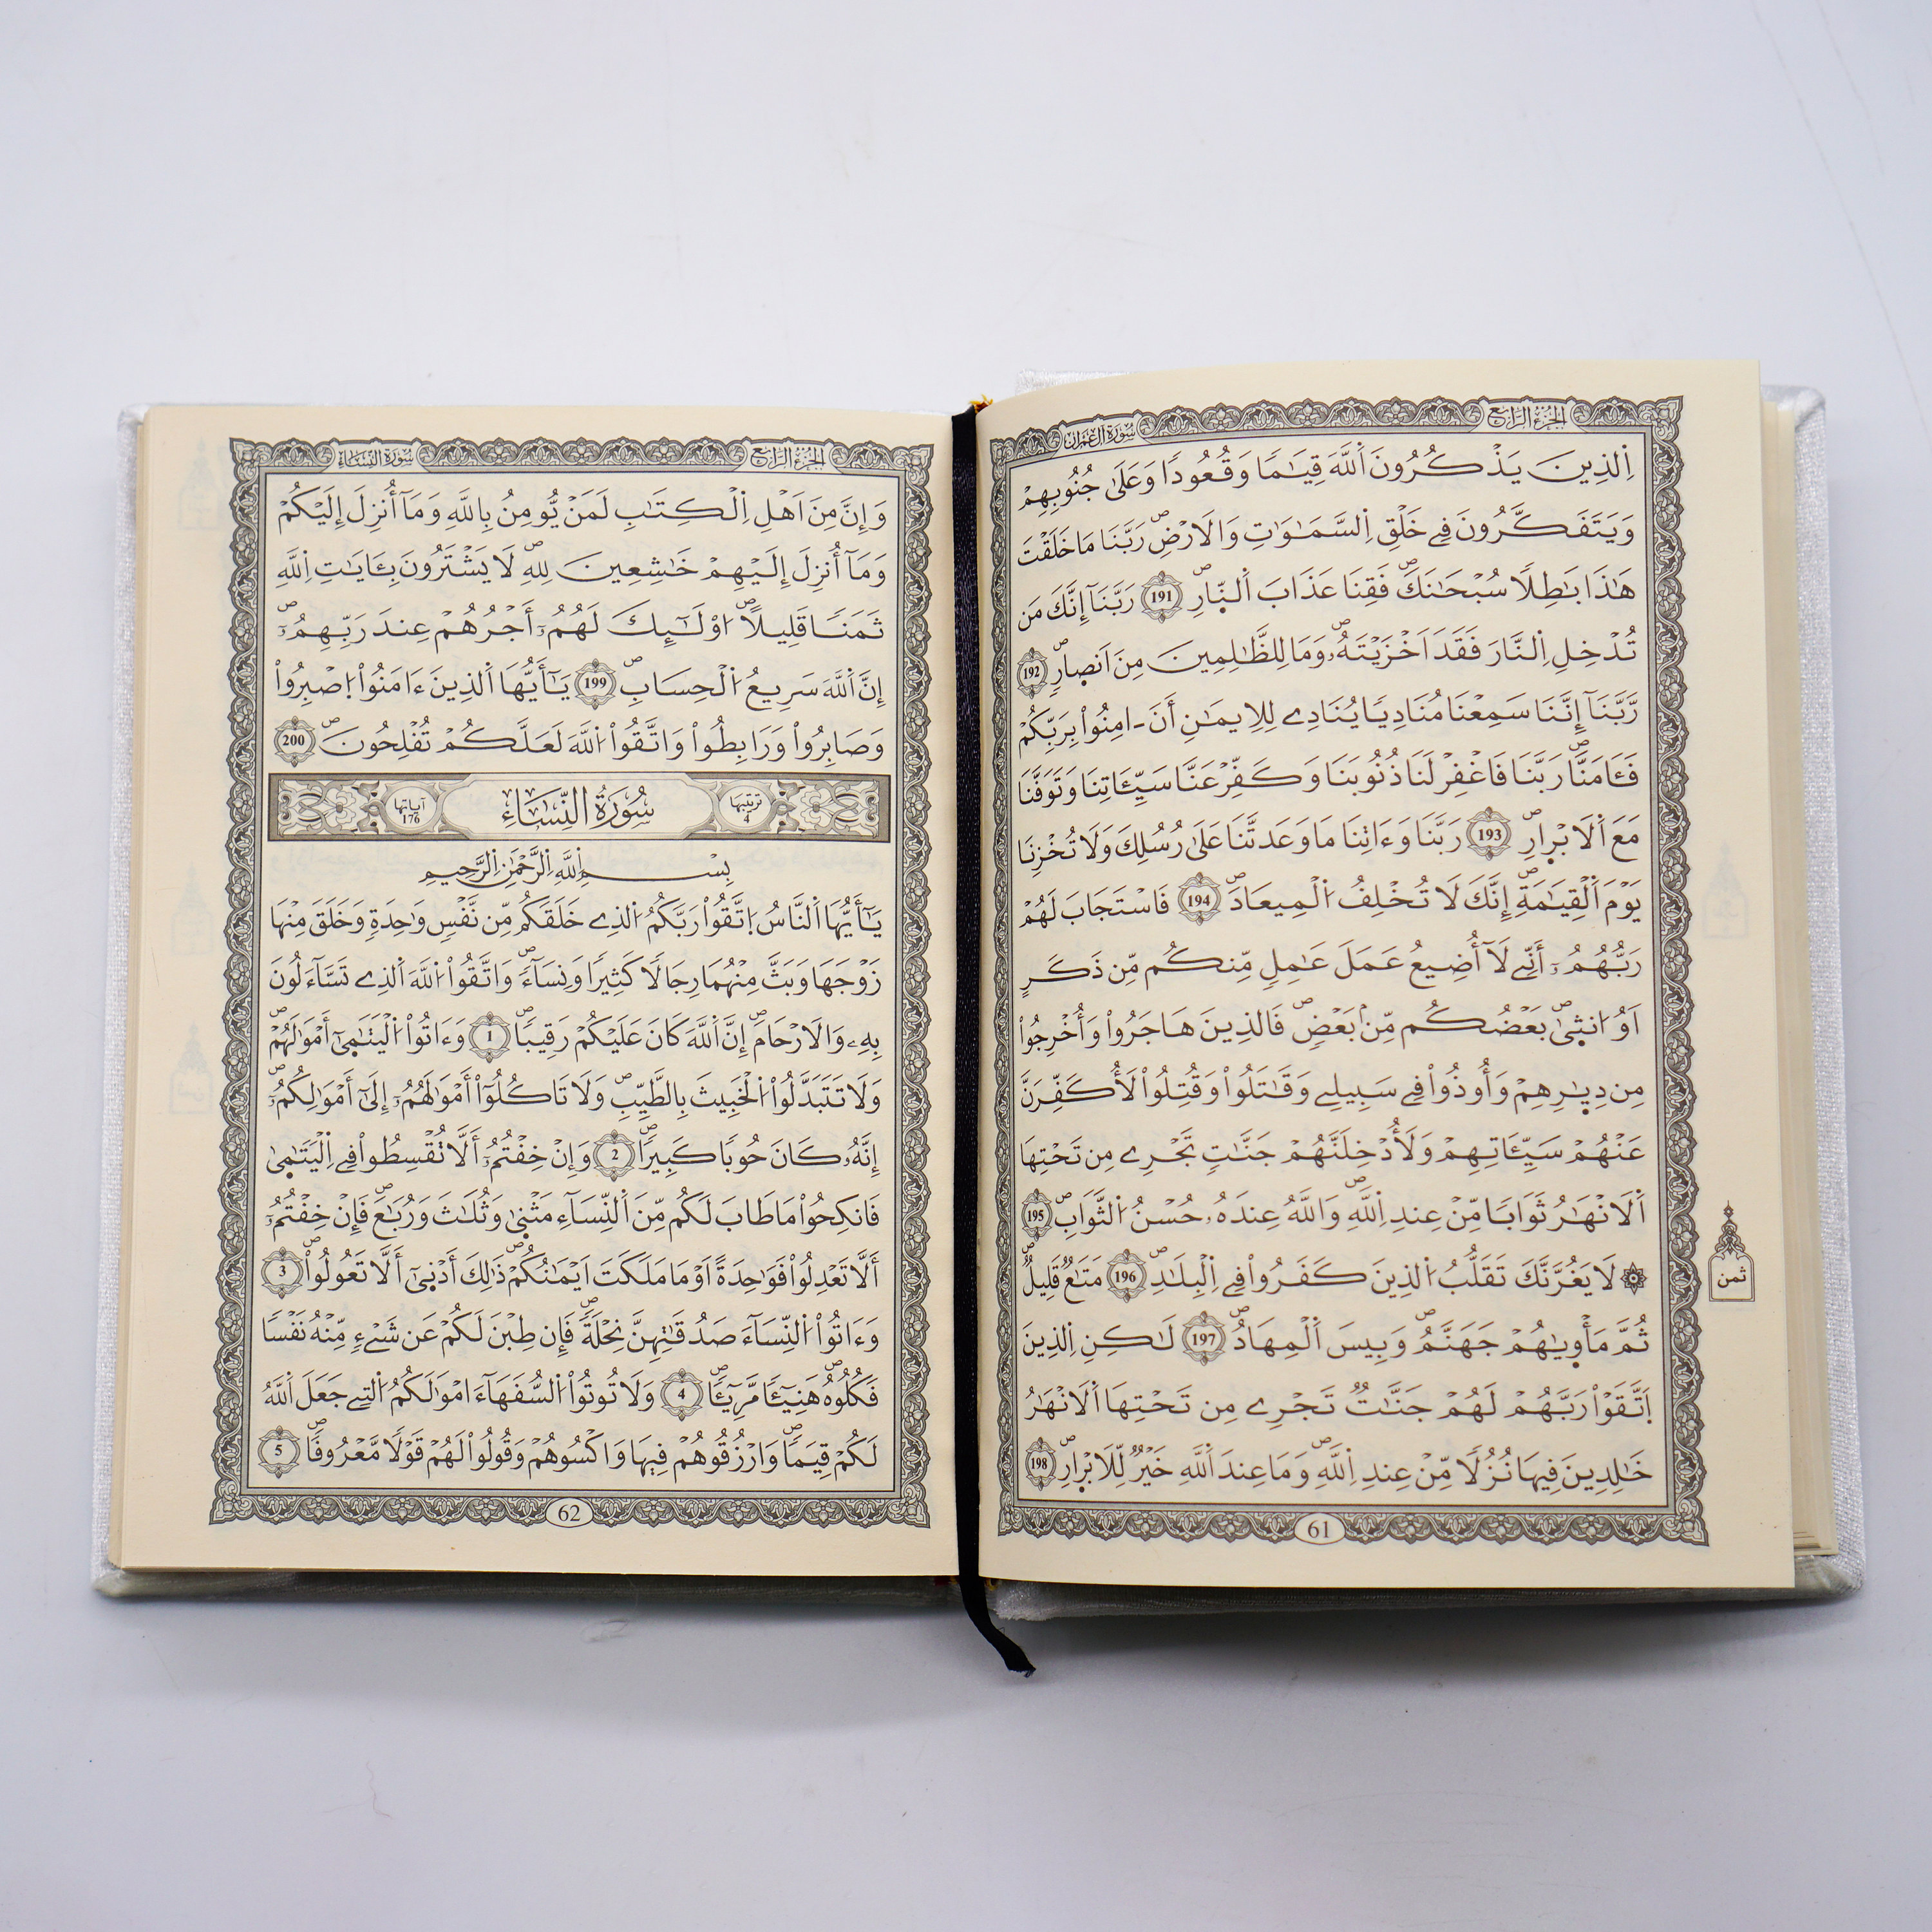 الجزء الرابع
سورة آل عمران
اِ۬لذِينَ يَذْكُرُونَ اَ۬للَّهَ قِيَٰماٗ وَقُعُوداٗ وَعَلَىٰ جُنُوبِهِمْ
وَيَتَفَكَّرُونَ فِے خَلْقِ اِ۬لسَّمَٰوَٰتِ وَالَارْضِۖ رَبَّنَا مَا خَلَقْتَ
هَٰذَا بَٰطِلاٗ سُبْحَٰنَكَۖ فَقِنَا عَذَابَ اَ۬لنّ۪ارِۖ 191 رَبَّنَآ إِنَّكَ مَن
تُدْخِلِ اِ۬لنَّارَ فَقَدَ اَخْزَيْتَهُۥۖ وَمَا لِلظَّٰلِمِينَ مِنَ اَنص۪ارٖۖ 192
رَّبَّنَآ إِنَّنَا سَمِعْنَا مُنَادِياٗ يُنَادِے لِلِايمَٰنِ أَنَ اٰمِنُواْ بِرَبِّكُمْ
فَـَٔامَنَّاۖ رَبَّنَا فَاغْفِرْ لَنَا ذُنُوبَنَا وَكَفِّرْ عَنَّا سَيِّـَٔاتِنَا وَتَوَفَّنَا
مَعَ اَ۬لَابْر۪ارِۖ 193 رَبَّنَا وَءَاتِنَا مَا وَعَدتَّنَا عَلَىٰ رُسُلِكَ وَلَا تُخْزِنَا
يَوْمَ اَ۬لْقِيَٰمَةِۖ إِنَّكَ لَا تُخْلِفُ اُ۬لْمِيعَادَۖ 194 فَاسْتَجَابَ لَهُمْ
رَبُّهُمُۥٓ أَنِّے لَآ أُضِيعُ عَمَلَ عَٰمِلٖ مِّنكُم مِّن ذَكَرٍ
اَوُ ا۟نث۪ىٰۖ بَعْضُكُم مِّنۢ بَعْضٖۖ فَالذِينَ هَاجَرُواْ وَأُخْرِجُواْ
مِن دِيٰ۪رِهِمْ وَأُوذُواْ فِے سَبِيلِے وَقَٰتَلُواْ وَقُتِلُواْ لَأُكَفِّرَنَّ
عَنْهُمْ سَيِّـَٔاتِهِمْ وَلَأُدْخِلَنَّهُمْ جَنَّٰتٖ تَجْرِے مِن تَحْتِهَا
اَ۬لَانْهَٰرُ ثَوَاباٗ مِّنْ عِندِ اِ۬للَّهِۖ وَاللَّهُ عِندَهُۥ حُسْنُ اُ۬لثَّوَابِۖ 195
۞ لَا يَغُرَّنَّكَ تَقَلُّبُ اُ۬لذِينَ كَفَرُواْ فِے اِ۬لْبِلَٰدِۖ 196 مَتَٰعٞ قَلِيلٞۖ
ثُمَّ مَأْو۪يٰهُمْ جَهَنَّمُۖ وَبِيسَ اَ۬لْمِهَادُۖ 197 لَٰكِنِ اِ۬لذِينَ
اَ۪تَّقَوْاْ رَبَّهُمْ لَهُمْ جَنَّٰتٞ تَجْرِے مِن تَحْتِهَا اَ۬لَانْهَٰرُ
خَٰلِدِينَ فِيهَا نُزُلاٗ مِّنْ عِندِ اِ۬للَّهِۖ وَمَا عِندَ اَ۬للَّهِ خَيْرٞ لِّلَابْر۪ارِۖ 198
ثمن
61
الجزء الرابع
سورة النساء
وَإِنَّ مِنَ اَهْلِ اِ۬لْكِتَٰبِ لَمَنْ يُّومِنُ بِاللَّهِ وَمَآ أُنزِلَ إِلَيْكُمْ
وَمَآ أُنزِلَ إِلَيْهِمْ خَٰشِعِينَ لِلهِۖ لَا يَشْتَرُونَ بِـَٔايَٰتِ اِ۬للَّهِ
ثَمَناٗ قَلِيلاًۖ ا۟وْلَٰٓئِكَ لَهُمُۥٓ أَجْرُهُمْ عِندَ رَبِّهِمُۥٓۖ
إِنَّ اَ۬للَّهَ سَرِيعُ اُ۬لْحِسَابِۖ 199 يَٰٓأَيُّهَا اَ۬لذِينَ ءَامَنُواْ اُ۪صْبِرُواْ
وَصَابِرُواْ وَرَابِطُواْ وَاتَّقُواْ اُ۬للَّهَ لَعَلَّكُمْ تُفْلِحُونَۖ 200
ترتيبها 4
سُورَةُ النِّسَاءِ
آياتها 176
بِسْمِ اِ۬للَّهِ اِ۬لرَّحْمَٰنِ اِ۬لرَّحِيمِ
يَٰٓأَيُّهَا اَ۬لنَّاسُ اُ۪تَّقُواْ رَبَّكُمُ اُ۬لذِے خَلَقَكُم مِّن نَّفْسٖ وَٰحِدَةٖ وَخَلَقَ مِنْهَا
زَوْجَهَا وَبَثَّ مِنْهُمَا رِجَالاٗ كَثِيراٗ وَنِسَآءٗۖ وَاتَّقُواْ اُ۬للَّهَ اَ۬لذِے تَسَّآءَلُونَ
بِهِۦ وَالَارْحَامَۖ إِنَّ اَ۬للَّهَ كَانَ عَلَيْكُمْ رَقِيباٗۖ 1 وَءَاتُواْ اُ۬لْيَتَٰم۪ىٰٓ أَمْوَٰلَهُمْۖ
وَلَا تَتَبَدَّلُواْ اُ۬لْخَبِيثَ بِالطَّيِّبِۖ وَلَا تَاكُلُوٓاْ أَمْوَٰلَهُمُۥٓ إِلَىٰٓ أَمْوَٰلِكُمُۥٓۖ
إِنَّهُۥ كَانَ حُوباٗ كَبِيراٗۖ 2 وَإِنْ خِفْتُمُۥٓ أَلَّا تُقْسِطُواْ فِے اِ۬لْيَتَٰم۪ىٰ
فَانكِحُواْ مَا طَابَ لَكُم مِّنَ اَ۬لنِّسَآءِ مَثْن۪ىٰ وَثُلَٰثَ وَرُبَٰعَۖ فَإِنْ خِفْتُمُۥٓ
أَلَّا تَعْدِلُواْ فَوَٰحِدَةً اَوْ مَا مَلَكَتَ اَيْمَٰنُكُمْۖ ذَٰلِكَ أَدْن۪ىٰٓ أَلَّا تَعُولُواْۖ 3
وَءَاتُواْ اُ۬لنِّسَآءَ صَدُقَٰتِهِنَّ نِحْلَةٗۖ فَإِن طِبْنَ لَكُمْ عَن شَےْءٖ مِّنْهُ نَفْساٗ
فَكُلُوهُ هَنِيٓـٔاٗ مَّرِيٓـٔاٗۖ 4 وَلَا تُوتُواْ اُ۬لسُّفَهَآءَ اَمْوَٰلَكُمُ اُ۬لتِے جَعَلَ اَ۬للَّهُ
لَكُمْ قِيَماٗۖ وَارْزُقُوهُمْ فِيهَا وَاكْسُوهُمْ وَقُولُواْ لَهُمْ قَوْلاٗ مَّعْرُوفاٗۖ 5
62